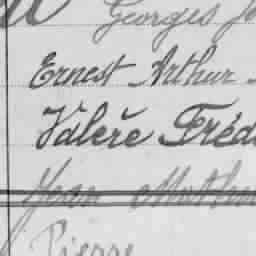 Georges
Ernest Arthur
Valère Fréd
Jean Mathu
Pierre